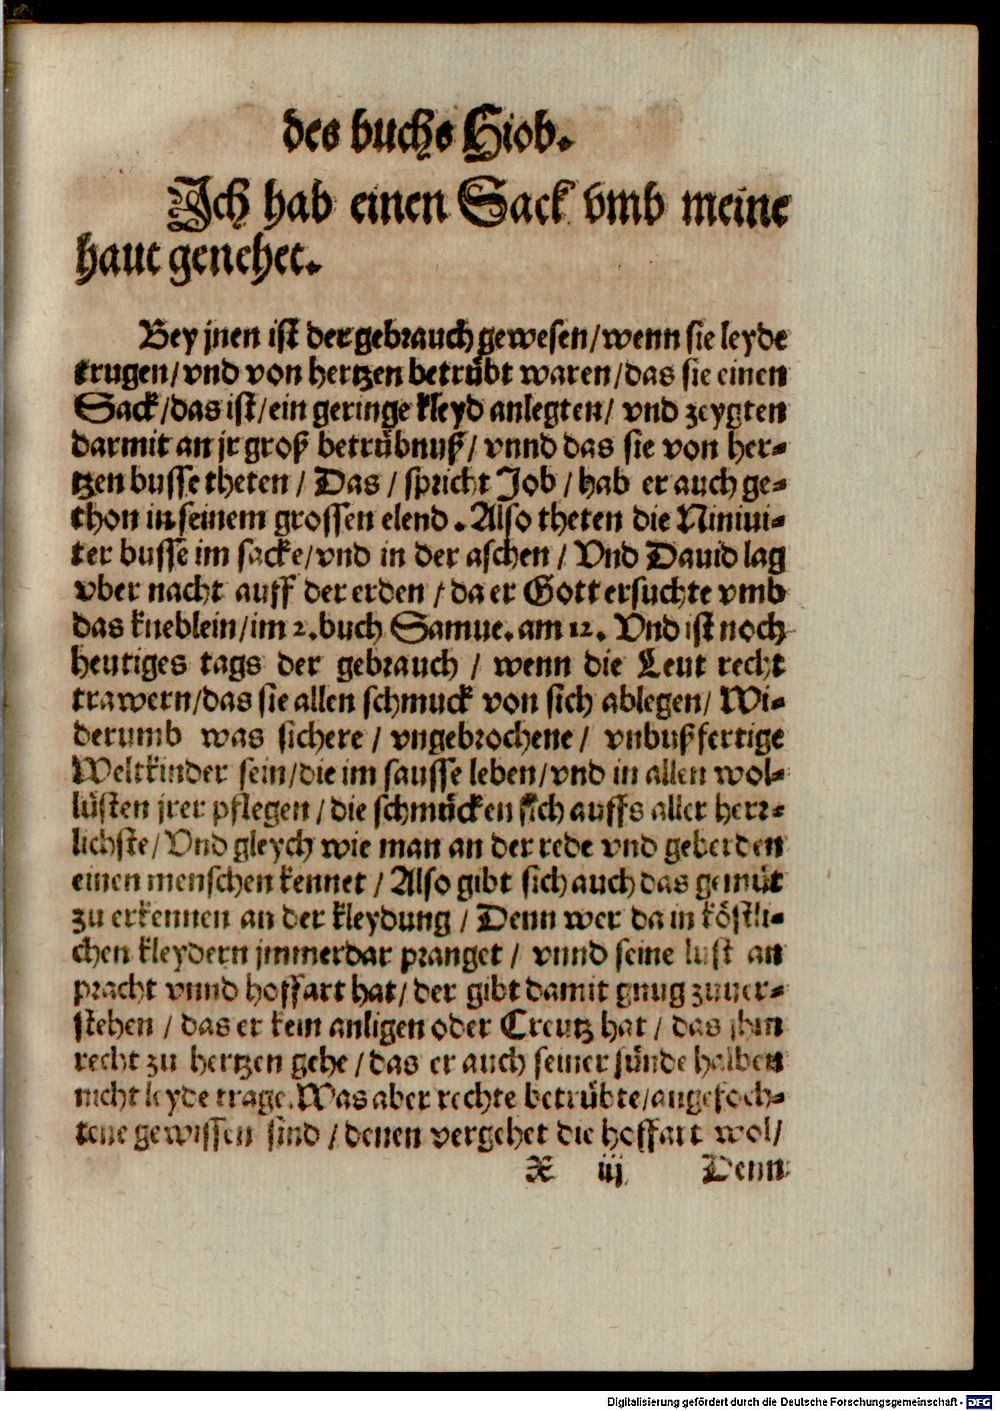 des buchs Hiob.
Ich hab einen Sack vmb meine
haut genehet.
Bey jnen ist der gebrauch gewesen/wenn sie leyde
trugen/vnd von hertzen betrübt waren/das sie einen
Sack/das ist/ein geringe kleyd anlegten/ vnd zeygten
darmit an jr groß betrübnuß/ vnnd das sie von her-
tzen busse theten / Das / spricht Job / hab er auch ge-
thon in seinem grossen elend. Also theten die Niniui-
ter busse im sacke/vnd in der aschen / Vnd Dauid lag
vber nacht auff der erden / da er Gott ersuchte vmb
das kneblein/im 2.buch Samue. am 12. Vnd ist noch
heutiges tags der gebrauch / wenn die Leut recht
trawern/das sie allen schmuck von sich ablegen/ Wi-
derumb was sichere / vngebrochene / vnbußfertige
Weltkinder sein/die im sausse leben/vnd in allen wol-
lüsten jrer pflegen / die schmücken sich auffs aller herr-
lichste/ Vnd gleych wie man an der rede vnd geberden
einen menschen kennet / Also gibt sich auch das gemüt
zu erkennen an der kleydung / Denn wer da in köstli-
chen kleydern jmmerdar pranget / vnnd seine lust an
pracht vnnd hoffart hat/ der gibt damit gnug zuuer-
stehen / das er kein anligen oder Creutz hat / das jhm
recht zu hertzen gehe / das er auch seiner sünde halben
nicht leyde trage. Was aber rechte betrübte/angefoch-
tene gewissen sind / denen vergehet die hoffart wol/
X iij Denn
Digitalisierung gefördert durch die Deutsche Forschungsgemeinschaft - DFG